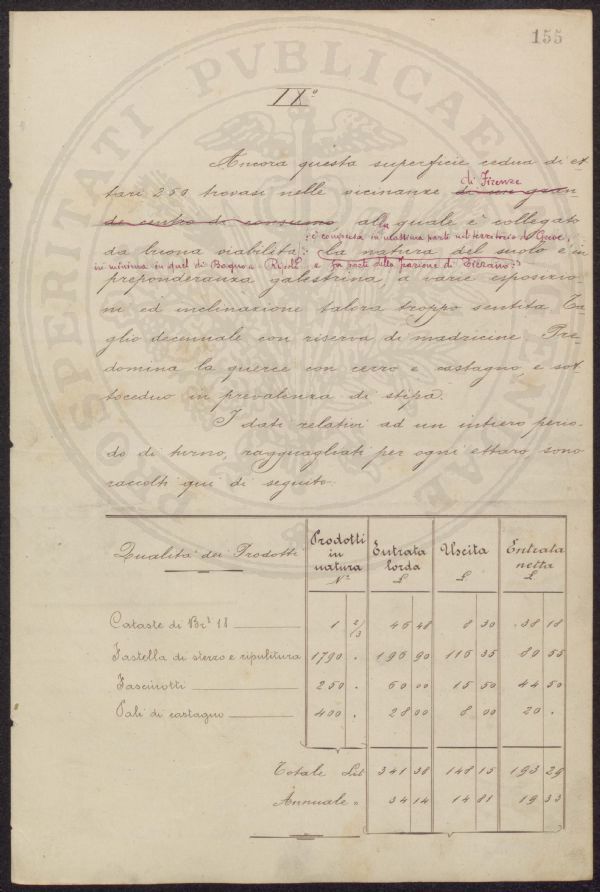 155
IXº
Ancora questa superficie cedua di et-
di Firenze
tari 250 trovasi nelle vicinanze di un gran-
de centro di consumo alla quale è collegato
è compresa in massima parte nel territorio di Greve,
da buona viabilità: la natura del suolo è in
in minima in quel di Bagno a Ripoli e fa parte della frazione di
preponderanza galestrina, a varie esposizio-
ni ed inclinazione talora troppo sentita. Ta-
glio decennale con riserva di madricine. Pre-
domina la querce con cerro e castagno, e sot-
toceduo in prevalenza di stipa.
I dati relativi ad un intiero perio-
do di turno, ragguagliati per ogni ettaro sono
raccolti qui di seguito.
Qualità dei Prodotti Prodotti in natura Nº Entrata lorda £ Uscita £ Entrata netta £
Cataste di Bra 18 1 2/3 46 48 8 30 38 18
Fastella di sterzo e ripulitura 1790 . 196 90 116 35 80 55
Fascinotti 250 . 60 00 15 50 44 50
Pali di castagno 400 . 28 00 8 00 20 .
Totale Lit 341 38 148 15 193 29
Annuale " 34 14 14 81 19 33
PROSPERITATI PVBLICAE